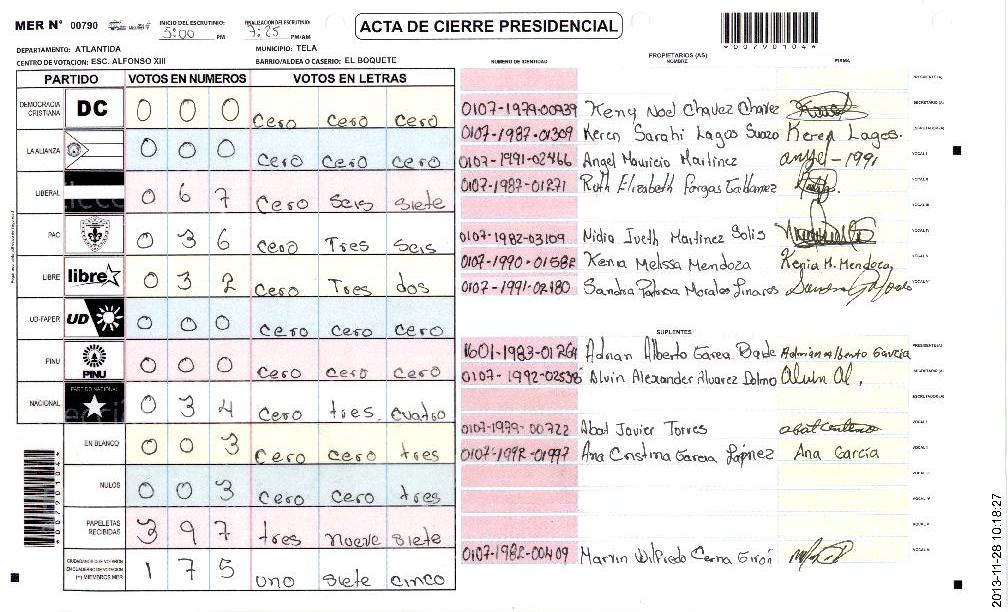 MER N° 00790 INICIO DEL ESCRUTINIO: 5:00 PM FINALIZACION DEL ESCRUTINIO: 7:25 PM/AM
ACTA DE CIERRE PRESIDENCIAL
*00790104*
DEPARTAMENTO: ATLANTIDA MUNICIPIO: TELA
CENTRO DE VOTACION: ESC. ALFONSO XIII BARRIO/ALDEA O CASERIO: EL BOQUETE
PARTIDO VOTOS EN NUMEROS VOTOS EN LETRAS
DEMOCRACIA CRISTIANA DC 0 0 0 Cero Cero Cero
LA ALIANZA 0 0 0 Cero Cero Cero
LIBERAL 0 6 7 Cero Seis Siete
PAC 0 3 6 Cero Tres Seis
LIBRE libre 0 3 2 Cero Tres dos
UD-FAPER UD 0 0 0 Cero Cero Cero
PINU PINU 0 0 0 Cero Cero Cero
NACIONAL PARTIDO NACIONAL 0 3 4 Cero tres cuatro
EN BLANCO 0 0 3 Cero Cero tres
NULOS 0 0 3 Cero Cero tres
PAPELETAS RECIBIDAS 3 9 7 tres nueve siete
CIUDADANOS QUE VOTARON EN CUADERNO DE VOTACION (*) MIEMBROS MER 1 7 5 uno siete cinco
*00790104*
PROPIETARIOS (AS)
NUMERO DE IDENTIDAD NOMBRE FIRMA
PRESIDENTE (A)
0107-1979-00939 Keny Noel Chavez Chavez SECRETARIO (A)
0107-1987-01309 Keren Sarahi Lagos Suazo Keren Lagos. ESCRUTADOR (A)
0107-1991-02466 Angel Mauricio Martinez angel-1991 VOCAL I
0107-1987-01271 Ruth Elizabeth VOCAL II
VOCAL III
0107-1982-03109 Nidia Iveth Martinez Solis VOCAL IV
0107-1990-01582 Kenia Melissa Mendoza Kenia M. Mendoza VOCAL V
0107-1991-02180 Sandra Patricia Morales Linares VOCAL VI
SUPLENTES
1601-1983-01264 Adrian Alberto Adrian Alberto Garcia PRESIDENTE (A)
0107-1992-02538 Alvin Alexander Alvarez SECRETARIO (A)
ESCRUTADOR (A)
0107-1979-00722 Abal Javier Torres VOCAL I
0107-1992-01997 Ana Cristina Garcia Ana García VOCAL II
VOCAL III
VOCAL IV
VOCAL V
0107-1982-00409 Marvin Wilfredo Cerna Girón VOCAL VI
2013-11-28 10:18:27